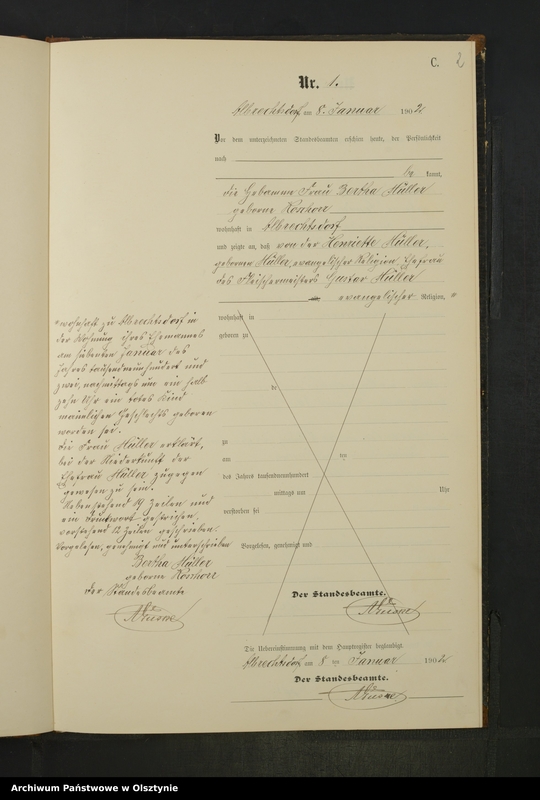 C. 2
Nr. 1.
Albrechtsdorf am 8. Januar 1902
Vor dem unterzeichneten Standesbeamten erschien heute, der Persönlichkeit
nach
be kannt,
die Hebamme Frau Bertha Müller
geborne
wohnhaft in Albrechtsdorf
und zeigte an, daß von der Henriette Müller,
gebornen Müller, evangelischer Religion, Ehefrau
des Fleischermeisters Gustav Müller
evangelischer Religion,
wohnhaft in
geboren zu
de
zu
am ten
des Jahres tausendneunhundert
mittags um Uhr
verstorben sei
Vorgelesen, genehmigt und
Der Standesbeamte.
wohnhaft zu Albrechtsdorf in
der Wohnung ihres Ehemannes
am siebenten Januar des
Jahres tausendneunhundert und
zwei, nachmittags um ein halb
zehn Uhr ein totes Kind
männlichen Geschlechts geboren
worden sei.
Die Frau Müller erklärt,
bei der Niederkunft der
Ehefrau Müller zugegen
gewesen zu sein.
Nebenstehend 19 Zeilen und
ein Druckwort gestrichen,
vorstehend 12 Zeilen geschrieben.
Vorgelesen, genehmigt und unterschrieben
Bertha Müller
geborne
Der Standesbeamte
Die Uebereinstimmung mit dem Hauptregister beglaubigt.
Albrechtsdorf am 8 ten Januar 1902
Der Standesbeamte.
Archiwum Państwowe w Olsztynie